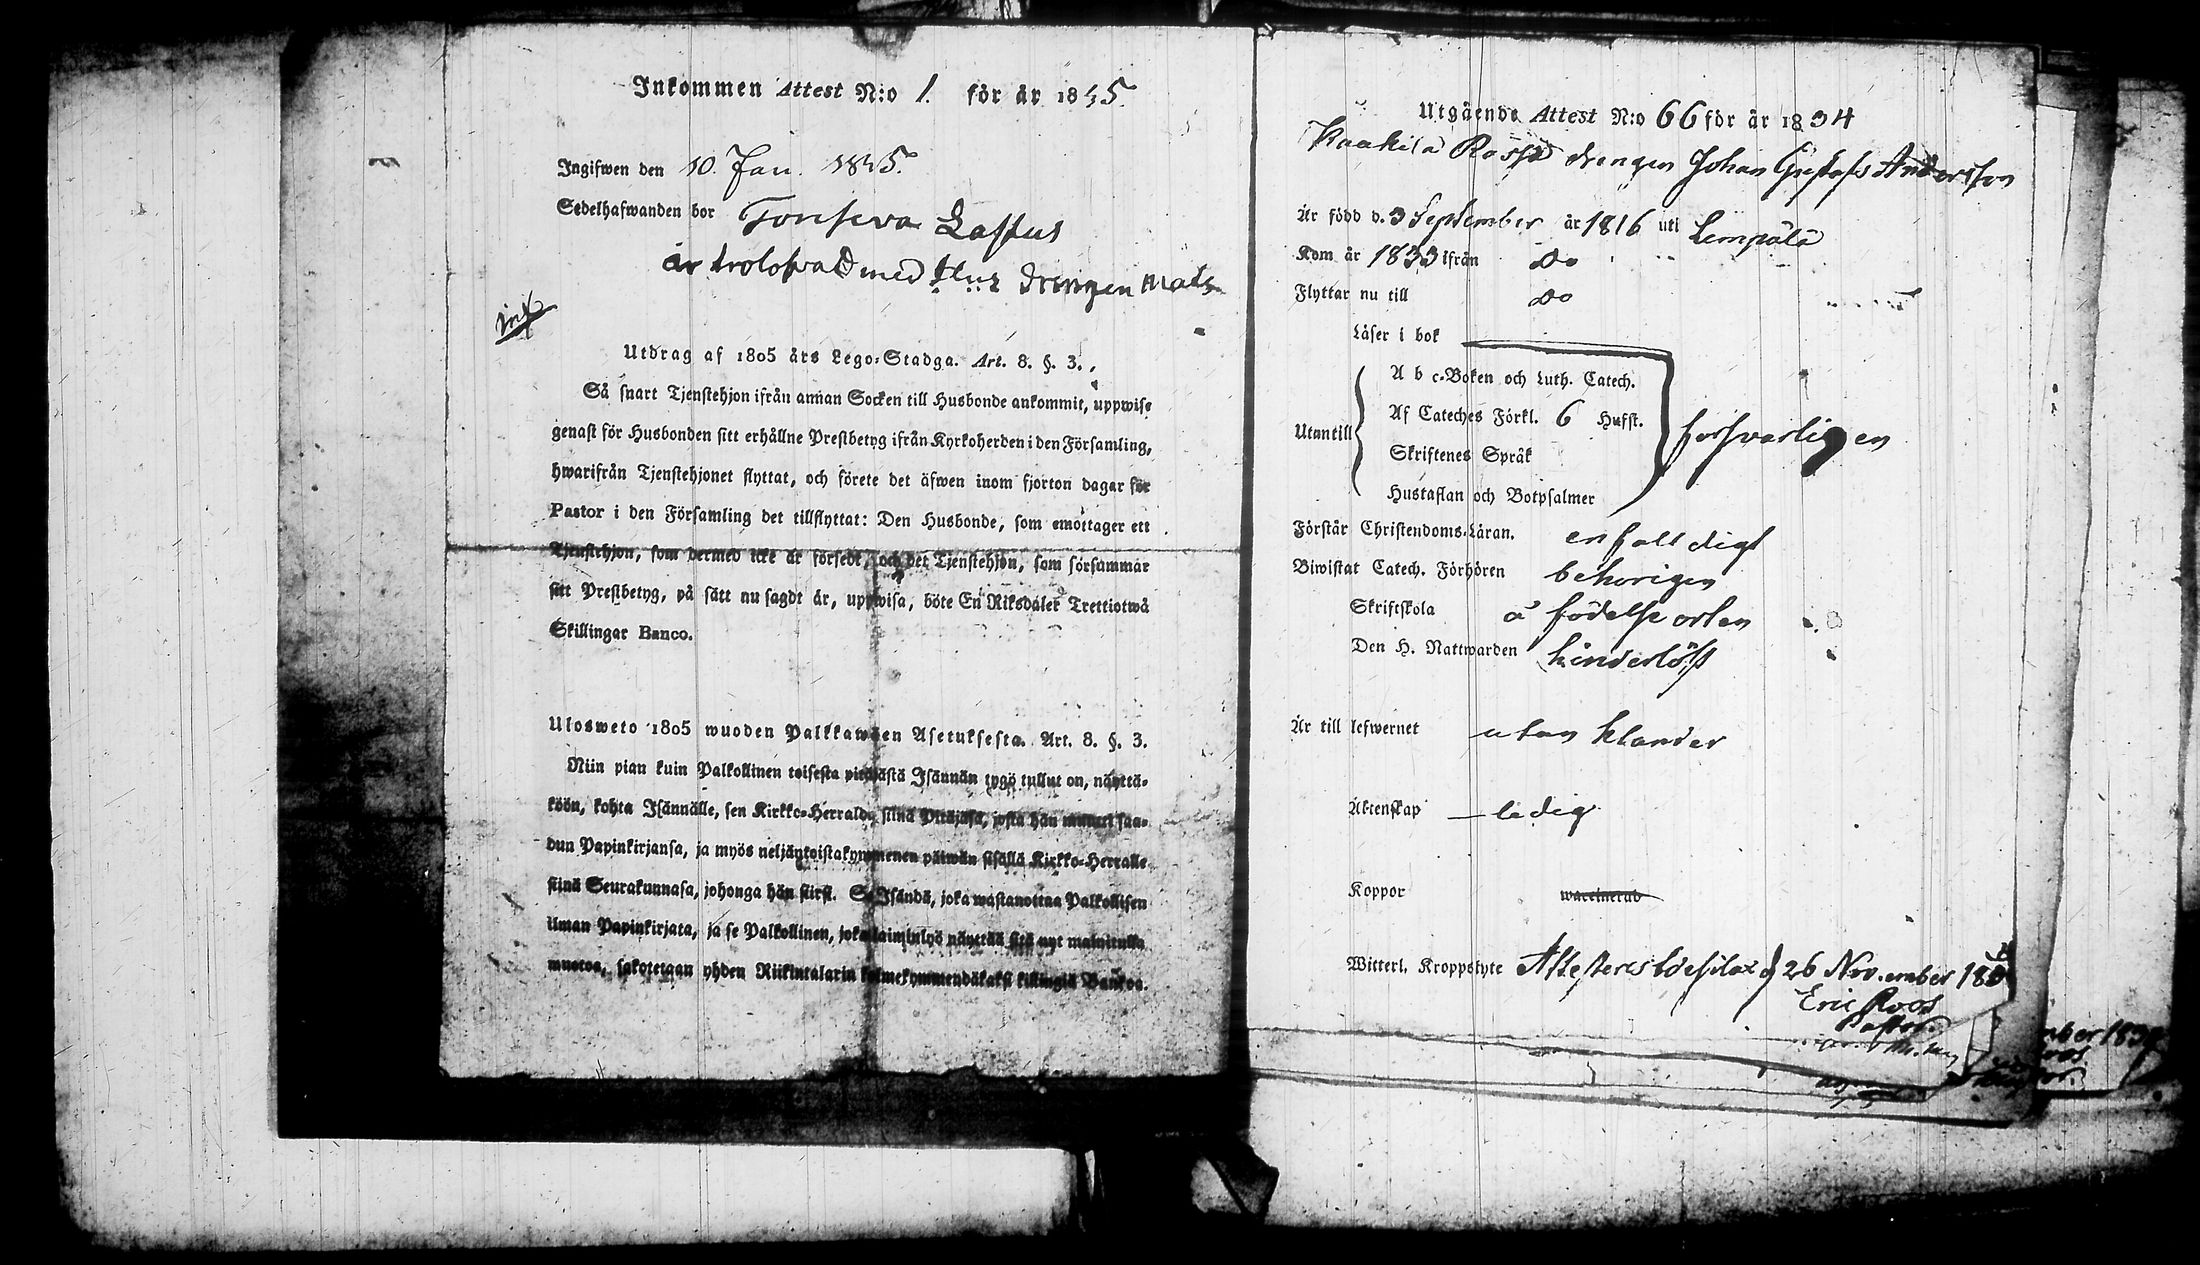 Inkommen Attest N:o 1. för år 1835.
Ingifwen den 10. Jan. 1835.
Sedelhafwanden bor Lastus
är trolofwad med drengen Mats
Utdrag af 1805 års Lego-Stadga. Art. 8. §. 3.
Så snart Tjenstehjon ifrån annan Socken till Husbonde ankommit, uppwise
genast för Husbonden sitt erhållne Prestbetyg ifrån Kyrkoherden i den Församling,
hwarifrån Tjenstehjonet flyttat, och förete det äfwen inom fjorton dagar för
Pastor i den Församling det tillflyttat: Den Husbonde, som emottager ett
Tjenstehjon, som dermed icke är försedt, och det Tjenstehjon, som försummar
sitt Prestbetyg, på sätt nu sagdt är, uppwisa, böte En Riksdaler Trettiotwå
Skillingar Banco.
Ulosweto 1805 wuoden Palkkawäen Asetuksesta. Art. 8. §. 3.
Niin pian kuin Palkollinen toisesta pitäjästä Isännän tygö tullut on, näyttä-
köön, kohta Isännälle, sen Kirkko-Herralda siinä Pitäjäsä, josta hän muutti saa-
dun Papinkirjansa, ja myös neljäntoistakymmenen päiwän sisällä Kirkko-Herralle
siinä Seurakunnasa, johonga hän siirsi. Se Isändä, joka wastanottaa Palkollisen
ilman Papinkirjata, ja se Palkollinen, joka laiminlyö näyttää sitä nyt mainitulla
muotoa, sakotetaan yhden Riikintalarin kolmekymmendäkaksi killingiä Bankoa.
Utgående Attest N:o 66 för år 1834
drengen Johan Gustafs Andersson
Är född d. 3 September år 1816 uti Lempälä
Kom år 1833 ifrån Do
Flyttar nu till Do
Läser i bok
Utantill
A b c-Boken och Luth. Catech.
Af Cateches Förkl. 6 Hufst.
Skriftenes Språk
Hustaflan och Botpsalmer
försvarligen
Förstår Christendoms-Läran. enfalldigt
Biwistat Catech. Förhören behörigen
Skriftskola å födelse orten
Den H. Nattwarden hinderlöst
Är till lefwernet utan klander
Äktenskap – ledig
Koppor waccinerad
Witterl. Kroppslyte Attesteras d 26 November 183
Eric Roos
Pastor